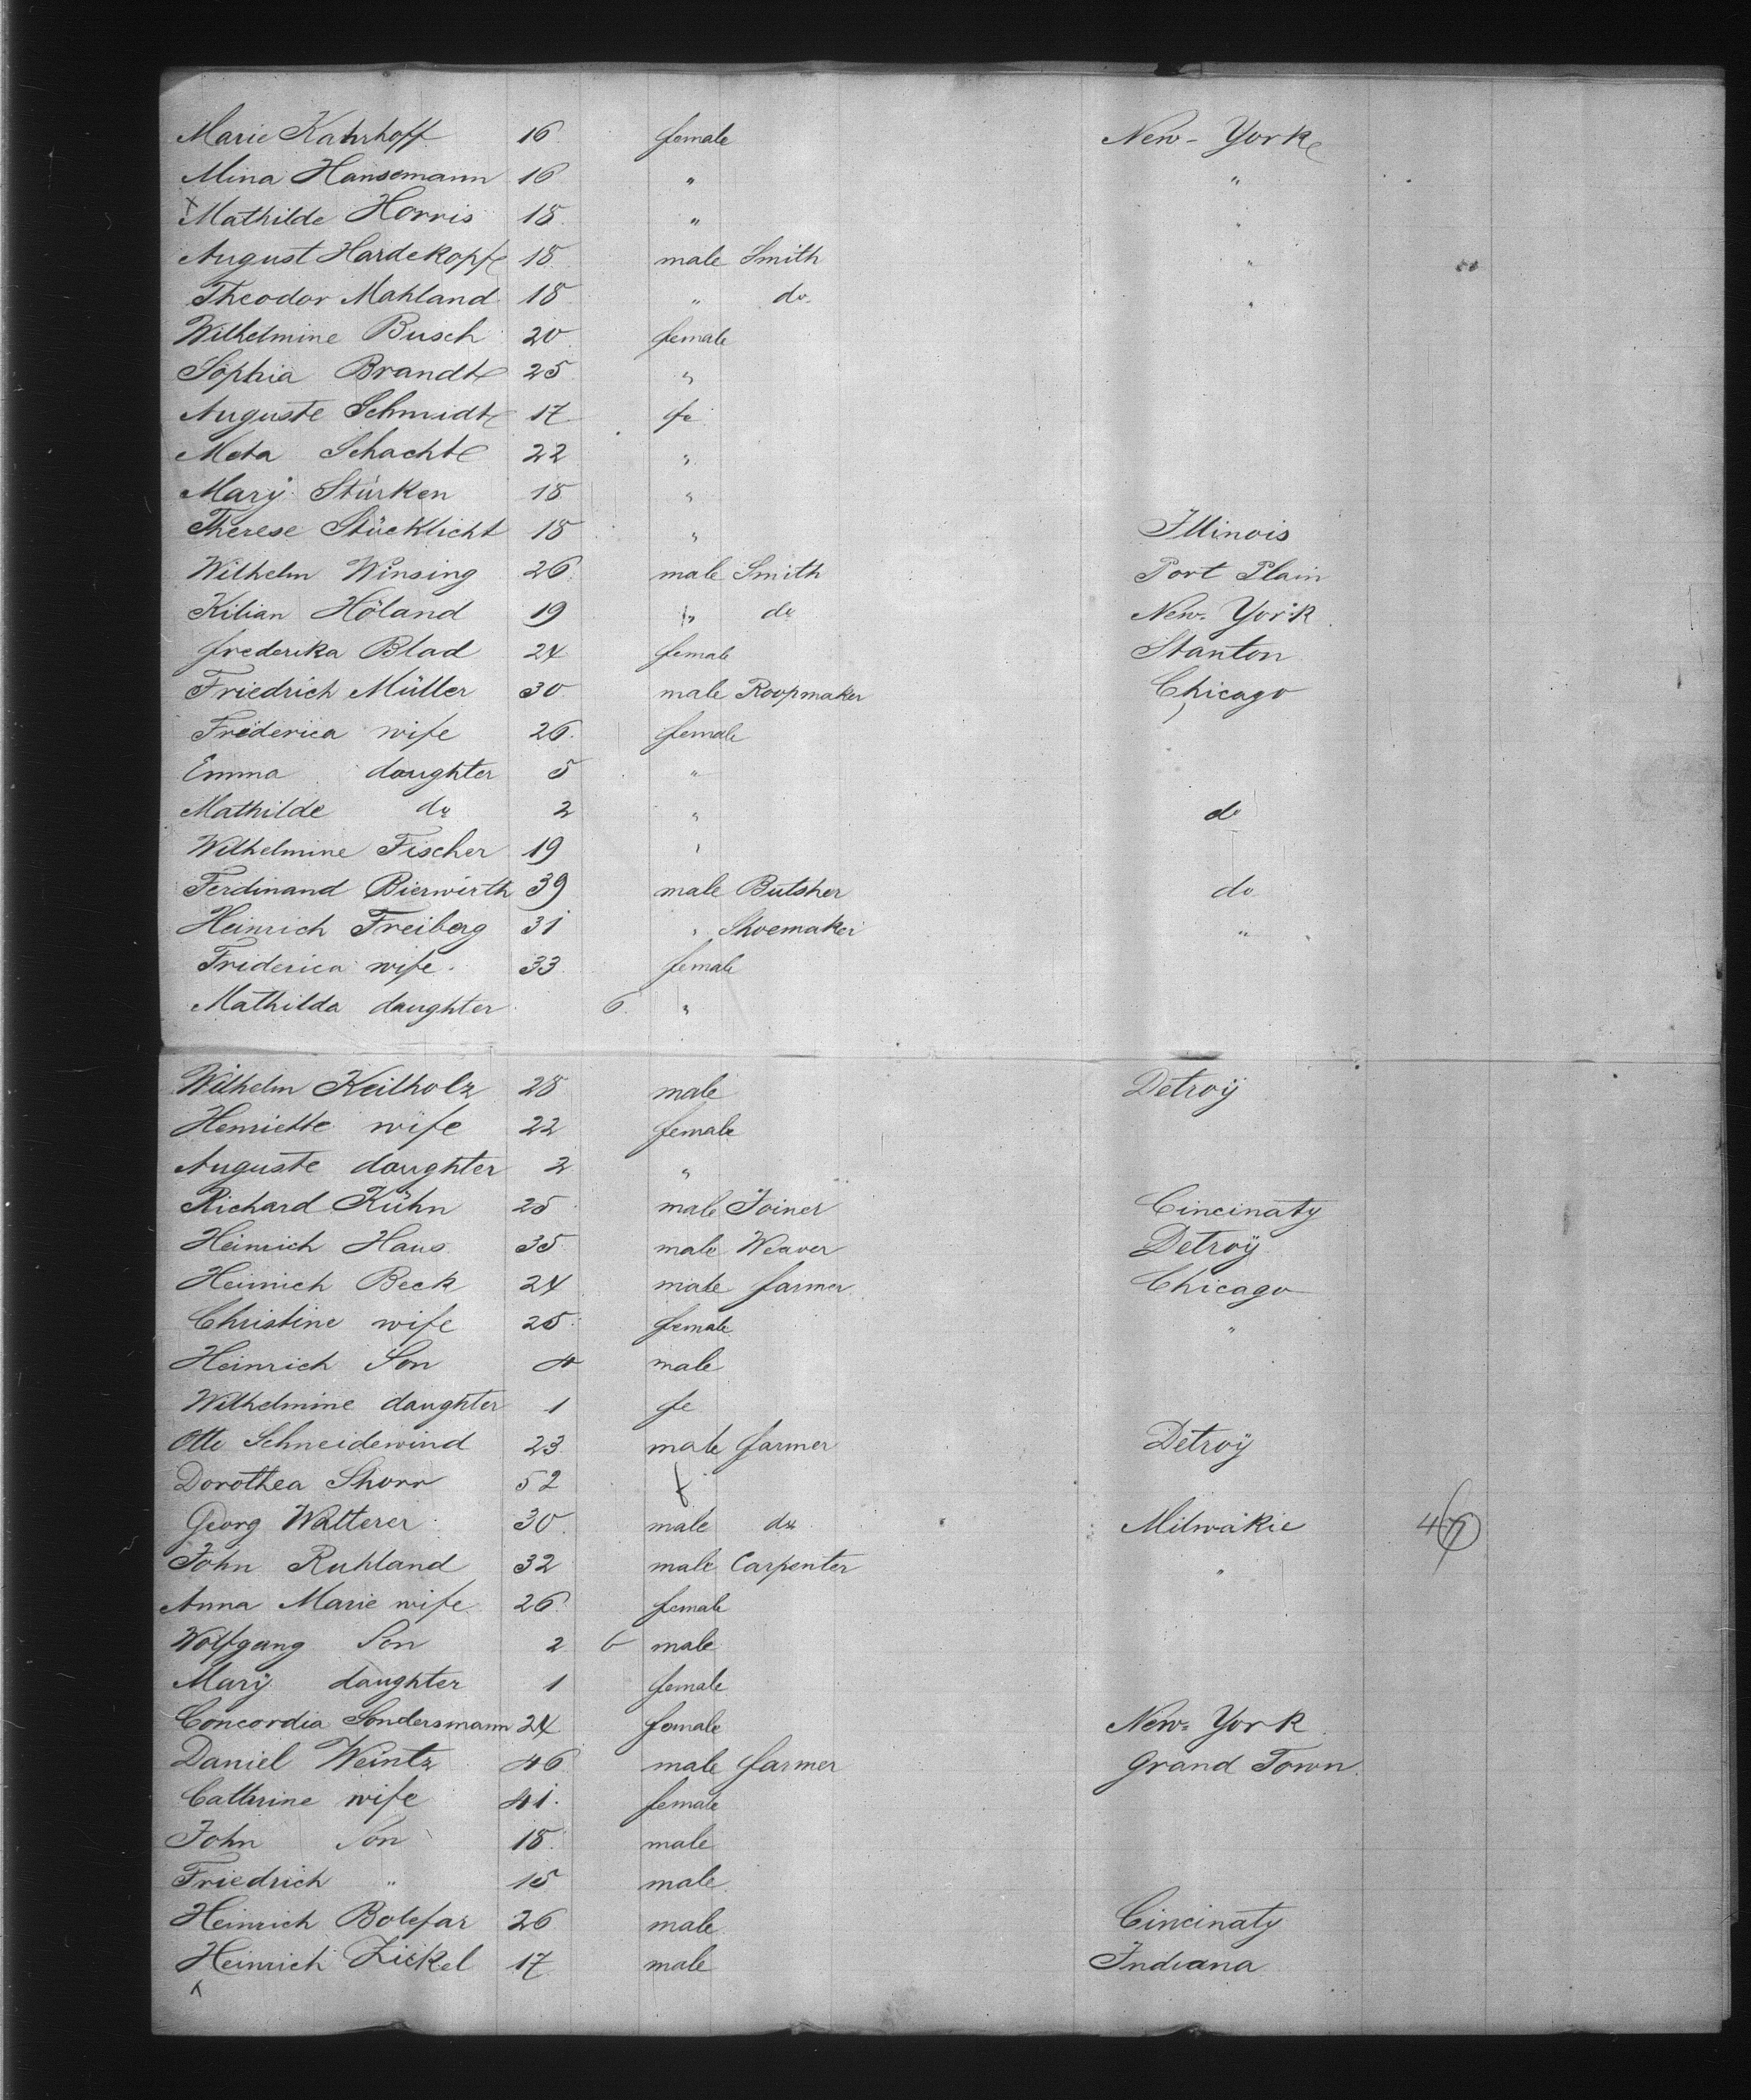 Marie Kahrhoff 16 female New-York
Mina Hansemann 16 " "
x Mathilde Horris 18 " "
August Hardekopf 18 male Smith "
Theodor Mahland 18 " do "
Wilhelmine Busch 20 female
Sophia Brandt 25 "
Auguste Schmidt 17 fe
Meta Schacht 22 "
Marÿ Stürken 18 "
Therese Stücklicht 18 " Illinois
Wilhelm Winsing 26 male Smith Port Plain
Kilian Höland 19 " do New-York
frederika Blad 24 female Stanton
Friedrich Müller 30 male Roopmaker Chicago
Frederica wife 26 female
Emma daughter 5 "
Mathilde do 2 " do
Wilhelmine Fischer 19 "
Ferdinand Bierwirth 39 male Butsher do
Heinrich Freiberg 31 " Shoemaker "
Friderica wife 33 female
Mathilda daughter 6 "
Wilhelm Keilholz 28 male Detroÿ
Henriette wife 22 female
Auguste daughter 2 "
Richard Kühn 25 male Joiner Cincinaty
Heinrich Haus 35 male Weaver Detroÿ
Heinrich Beck 24 male farmer Chicago
Christine wife 25 female "
Heinrich Son 4 male
Wilhelmine daughter 1 fe
Otto Schneidewind 23 male farmer Detroÿ
Dorothea Shorr 52 f
Georg Walterer 30 male do Milwakie
John Ruhland 32 male Carpenter "
Anna Marie wife 26 female
Wolfgang Son 2 6 male
Marÿ daughter 1 female
Concordia Sondersmann 24 female New-York
Daniel Weintz 46 male farmer Grand Town
Cathrine wife 41 female
John Son 18 male
Friedrich " 15 male
Heinrich Bolefar 26 male Cincinaty
Heinrich Zickel 17 male Indiana